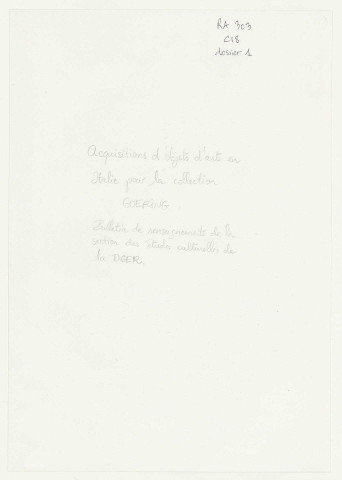 RA 303
C18
dossier 1
Acquisitions d'objets d'art en
Italie pour la collection
GOERING
Bulletin de renseignements de la
section des études culturelles de
la DGER